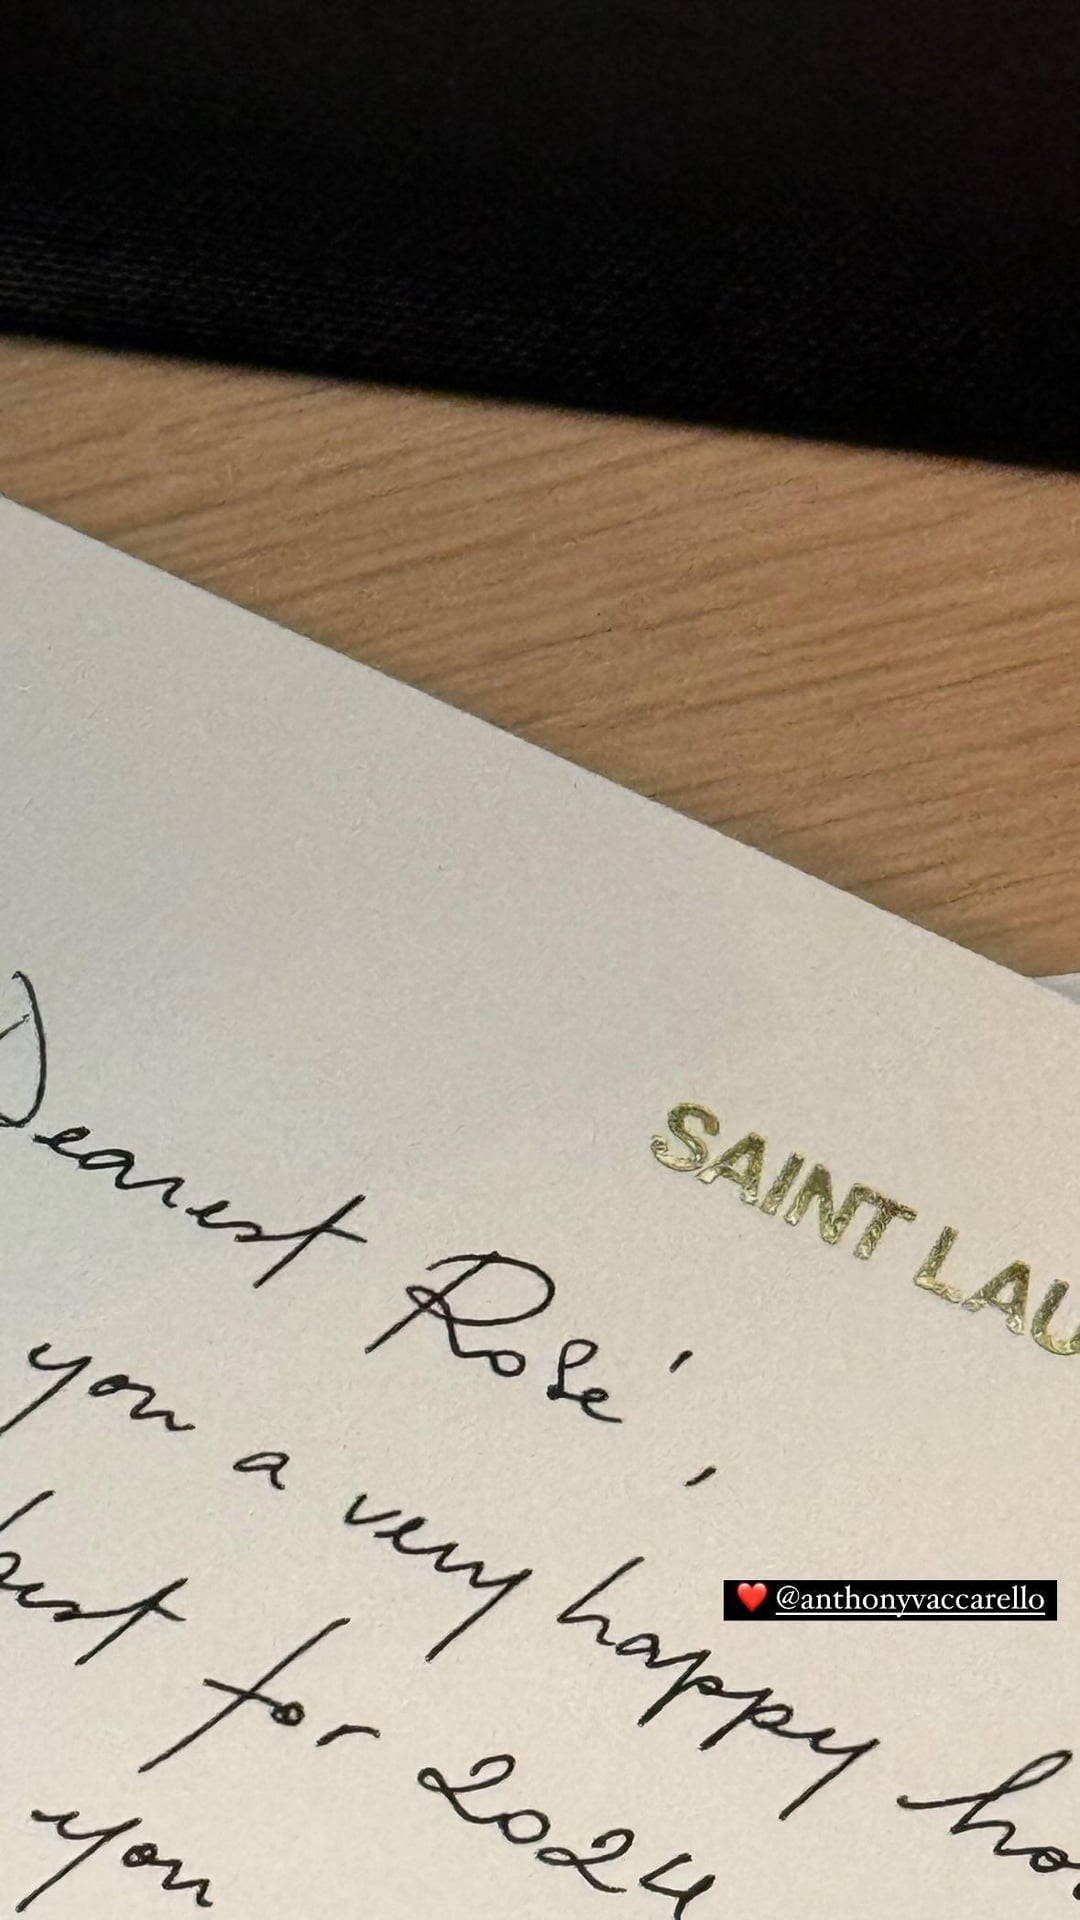 SAINT LAU
Dearest Rosé,
you a very happy ho
best for 2024
you
❤️ @anthonyvaccarello